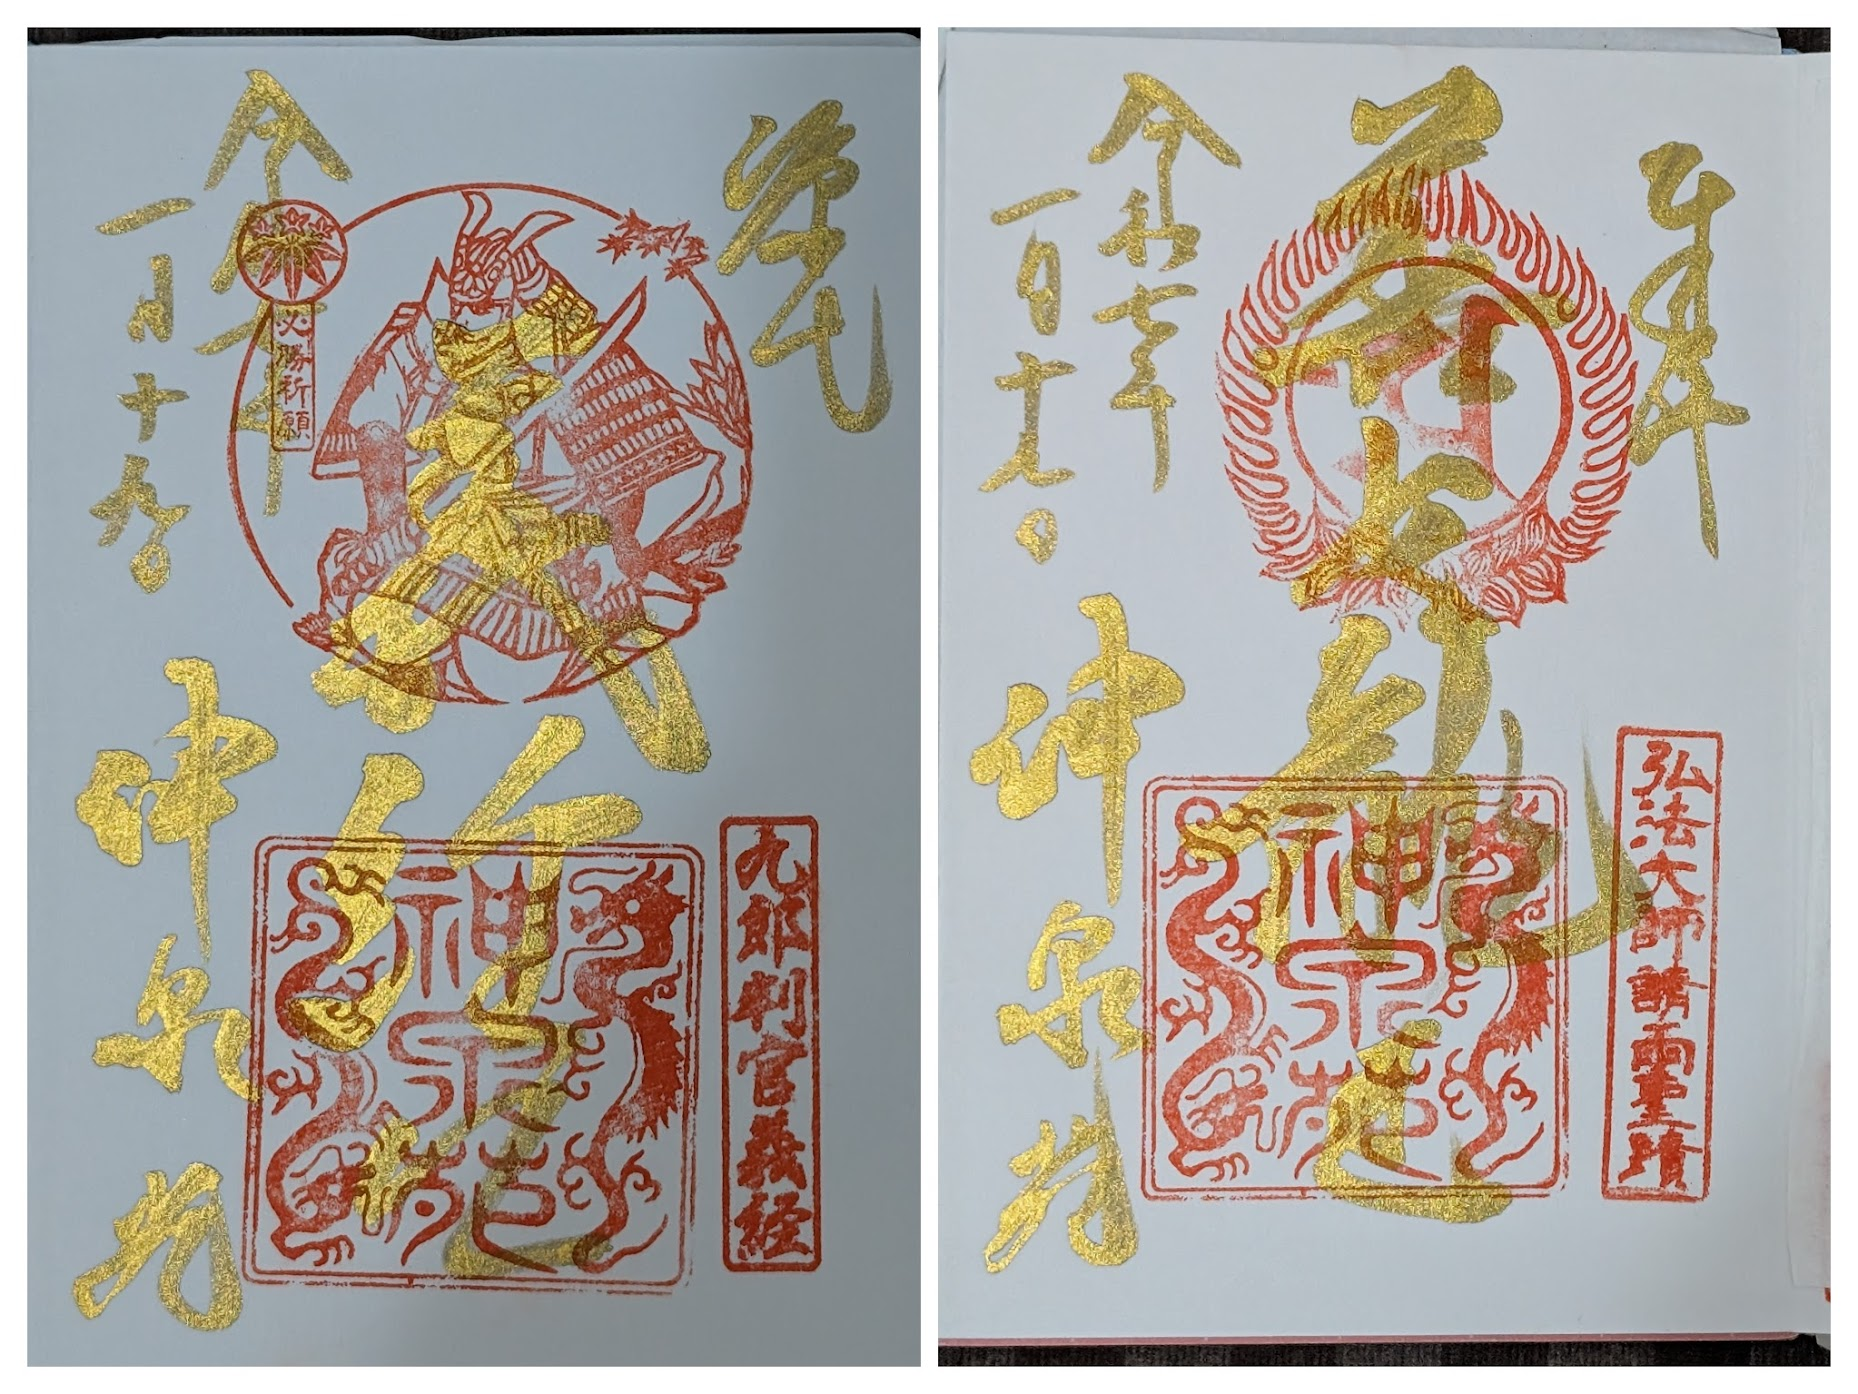 九郎判官義経
義経
必勝祈願
神泉苑
令和七年
一月十九日
神泉苑
奉拝
弘法大師請雨聖蹟
善女龍王
神泉苑
令和七年
一月十七日
神泉苑